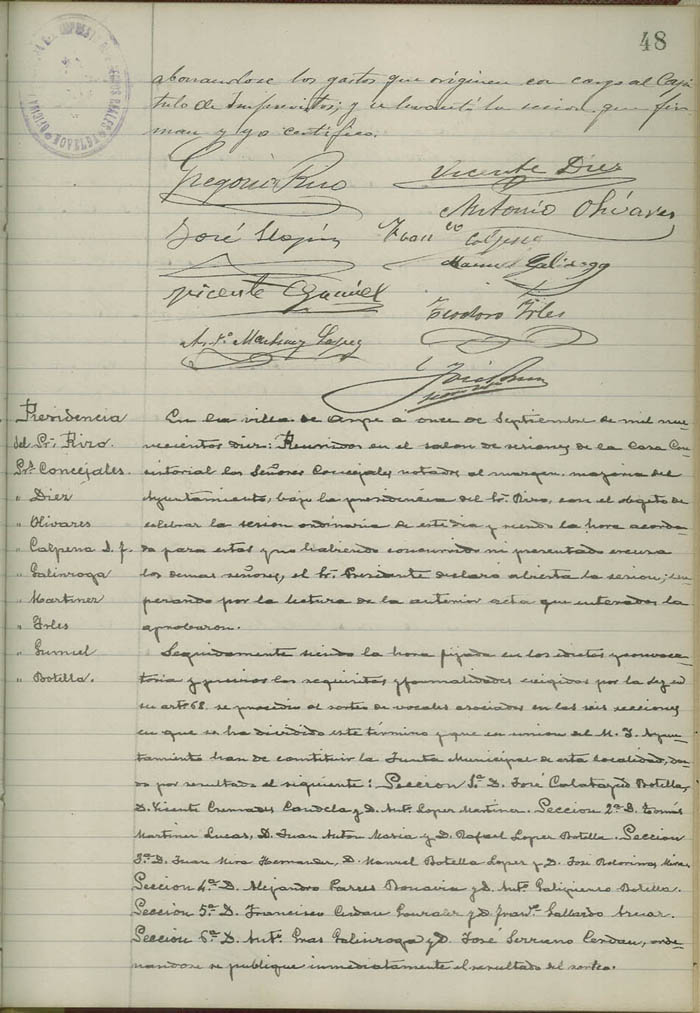 48
abonandose los gastos que originen con cargo al Capi
tulo de Imprevistos; y se levantó la sesion que fir
man y yo certifico.
Gregorio Rizo
Vicente Diez
Antonio Olivares
José
Calpena
Manuel Galinsoga
Vicente Gumiel
Teodoro Irles
Ant.º Martinez Lopez
José
Presidencia
del Sr. Rizo.
Srs. Concejales.
" Diez
" Olivares
" Calpena D. f.
" Galinsoga
" Martinez
" Irles
" Gumiel
" Botella.
En la villa de Aspe á once de Septiembre de mil nue
vecientos diez: Reunidos en el salon de sesiones de la Casa Con
sistorial los Señores Concejales notados al margen, mayoria del
Ayuntamiento, bajo la presidencia del Sr. Rizo, con el objeto de
celebrar la sesion ordinaria de este dia y siendo la hora acorda-
da para estas y no habiendo concurrido ni presentado excusa
los demas señores, el Sr. Presidente declaró abierta la sesion; em
pezando por la lectura de la anterior acta que enterados la
aprobaron.
Seguidamente siendo la hora fijada en los edictos y convoca-
toria y previos los requisitos y formalidades exigidos por la ley en
su artº 68, se procedió al sorteo de vocales asociados en las seis secciones
en que se ha dividido este término y que en union del M. I. Ayun-
tamiento han de constituir la Junta Municipal de esta localidad, dan
do por resultado el siguiente: Seccion 1ª D. José Calatayud Botella,
D. Vicente Cremades Candela y D. Antº Lopez Martinez. Seccion 2ª D. Tomás
Martinez Lucas, D. Juan Anton Maria y D. Rafael Lopez Botella. Seccion
3ª D. Juan Mira Hernandez, D. Manuel Botella Lopez y D. José Mira.
Seccion 4ª D. Alejandro Parres Bonavia y D. Antº Botella.
Seccion 5ª D. Francisco Cerdan Gonzalez y D. Franco Gallardo Aznar.
Seccion 6ª D. Antº Gras Galinsoga y D. José Serrano Cerdan, orde-
nandose se publique inmediatamente el resultado del sorteo.